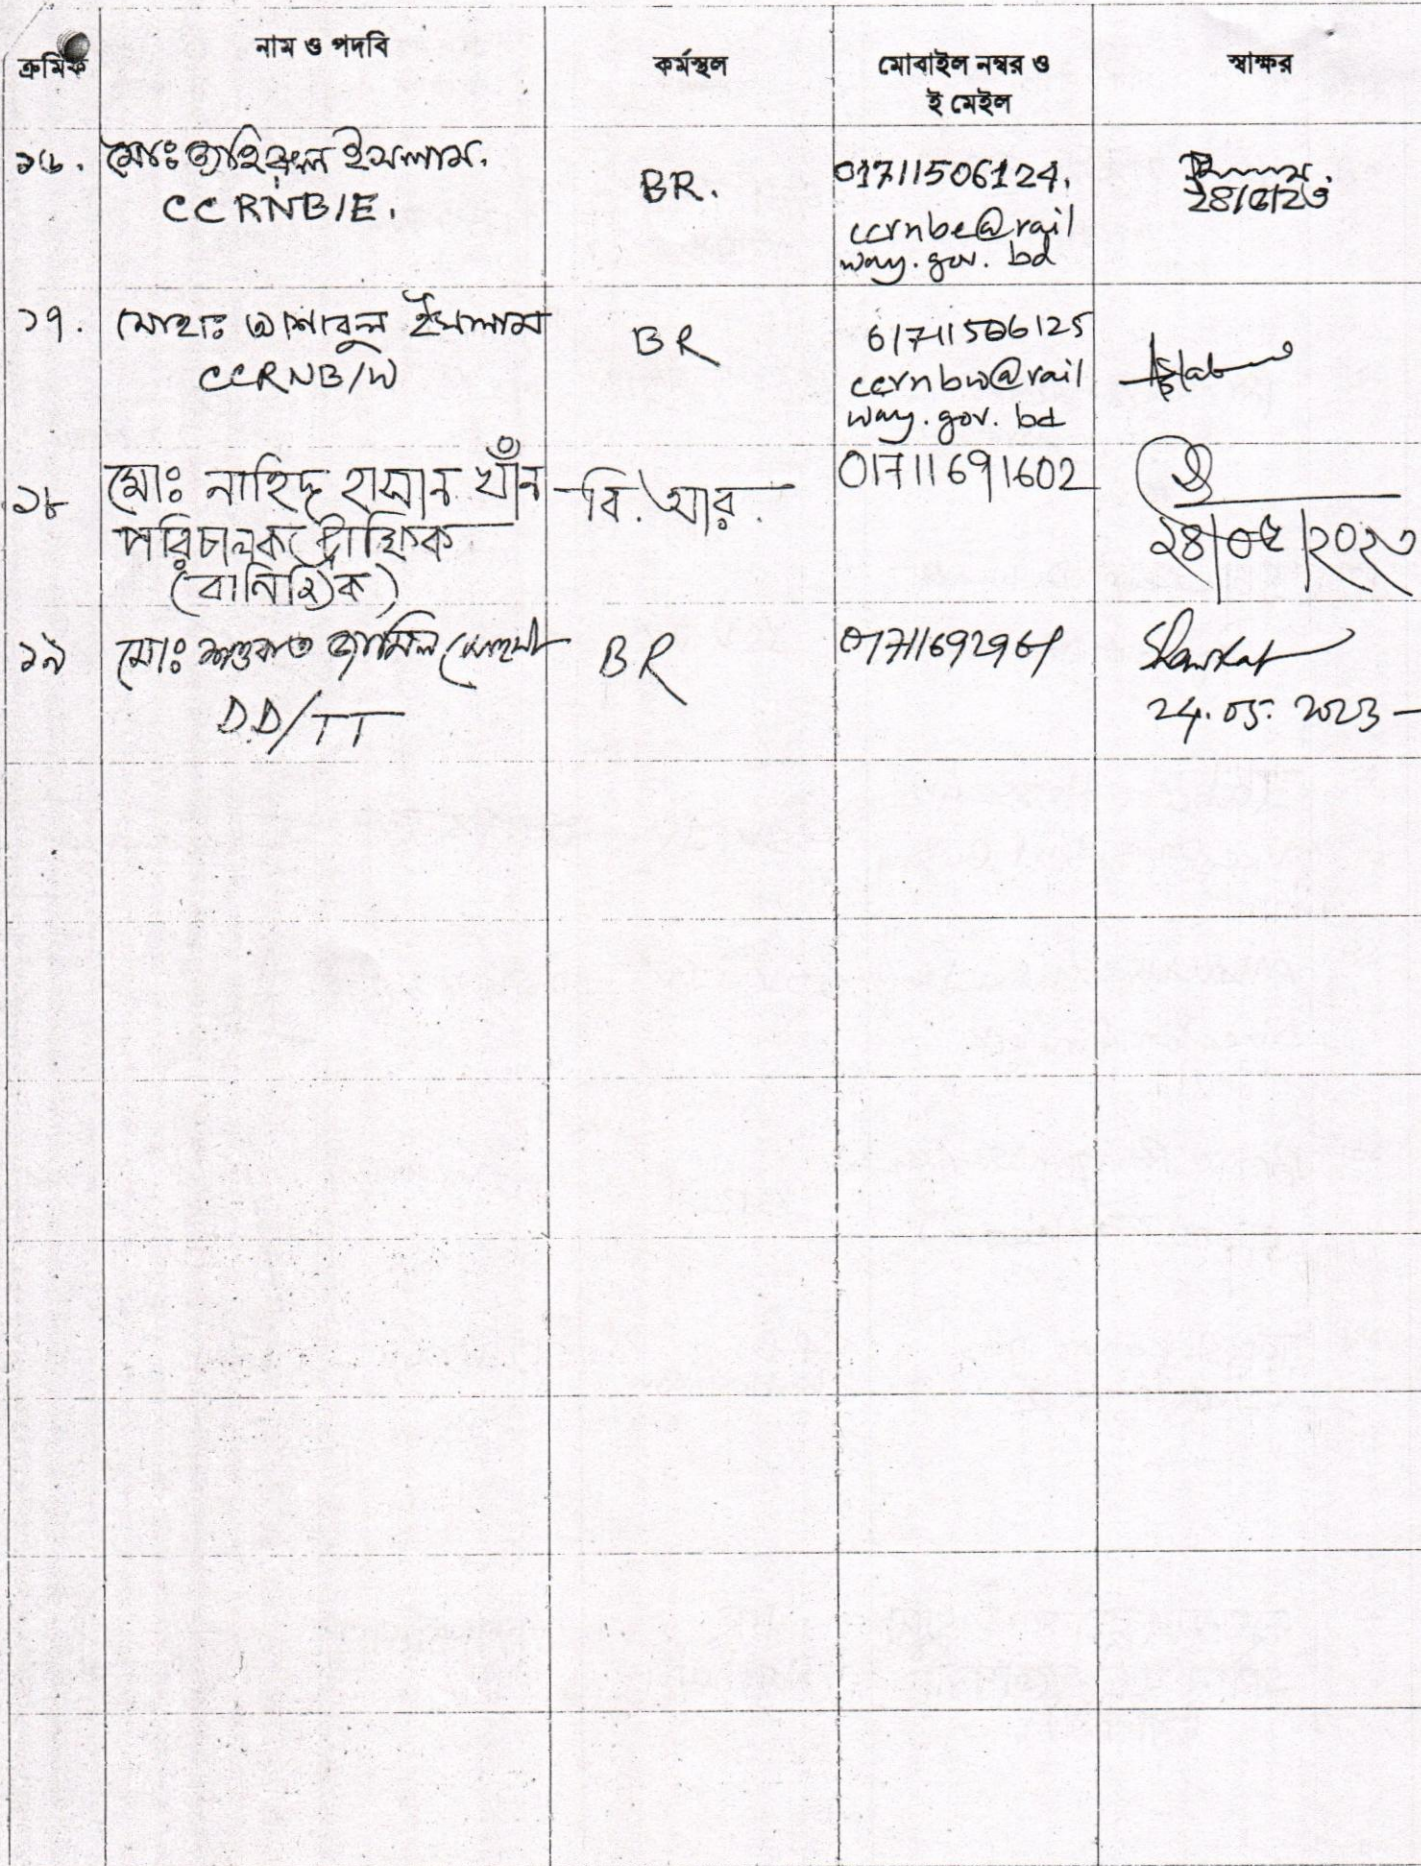 ক্রমিক
নাম ও পদবি
কর্মস্থল
মোবাইল নম্বর ও
ই মেইল
স্বাক্ষর
১৬.
মোঃ জহিরুল ইসলাম.
CCRNB/E.
BR.
01711506124.
ccrnbe@rail
way.gov.bd
১৭.
মোহাঃ আশাবুল ইসলাম
CCRNB/W
BR
01711506125
ccrnbw@rail
way.gov.bd
১৮
মোঃ নাহিদ হাসান খাঁন
পরিচালক ট্রাফিক
(বানিজ্যিক)
বি.আর.
01711691602
২৪/০৫/২০২৩
১৯
মোঃ শওকত জামিল মোহসী
D.D/TT
BR
Shawkat
24.05.2023